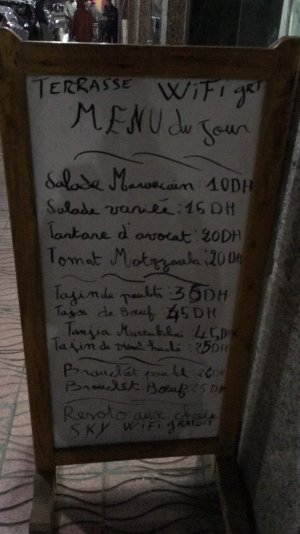 TERRASSE WiFi grt
MENU du Jour
Salade Marocain : 10DH
Salade variée : 15 DH
Tartare d'avocat : 20DH
Tomat Mozzarela : 20DH
Tajin de poulet : 35DH
Tajin de Bœuf : 45DH
Tanjia Marrakchi 45DH
Tajin de viand haché : 35DH
Brouchét poulet DH
Brouchét Bœuf : DH
Resoto aux
SKY WiFi gratuit